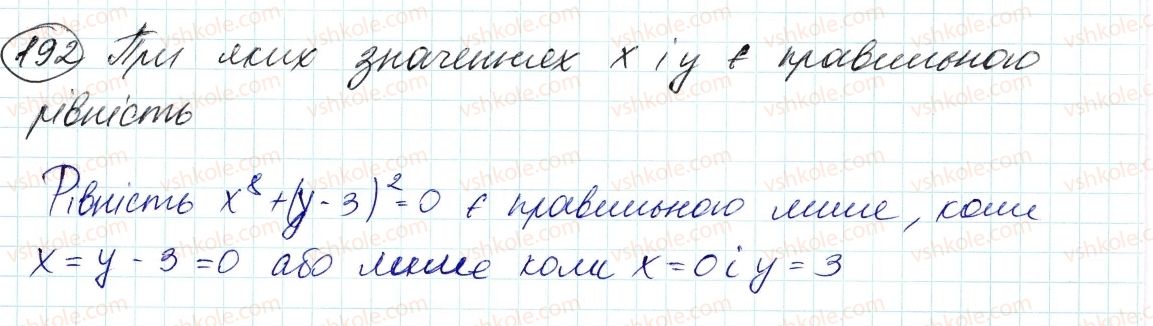 192 При яких значеннях x і y є правильною
рівність
Рівність x⁸+(y-3)²=0 є правильною лише, коли
x=y-3=0 або лише коли x=0 і y=3